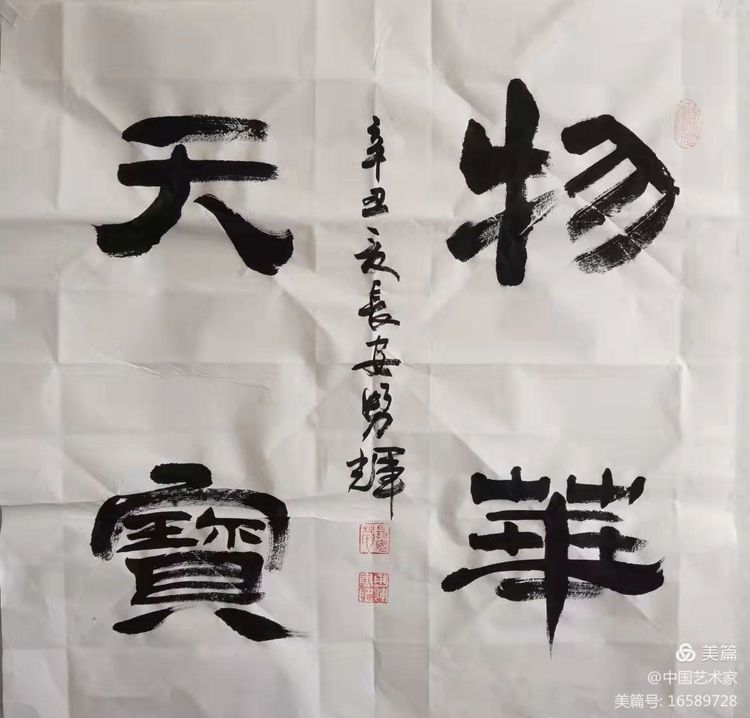 物華
天寶
辛丑夏長安勢輝
美篇
@中国艺术家
美篇号: 16589728